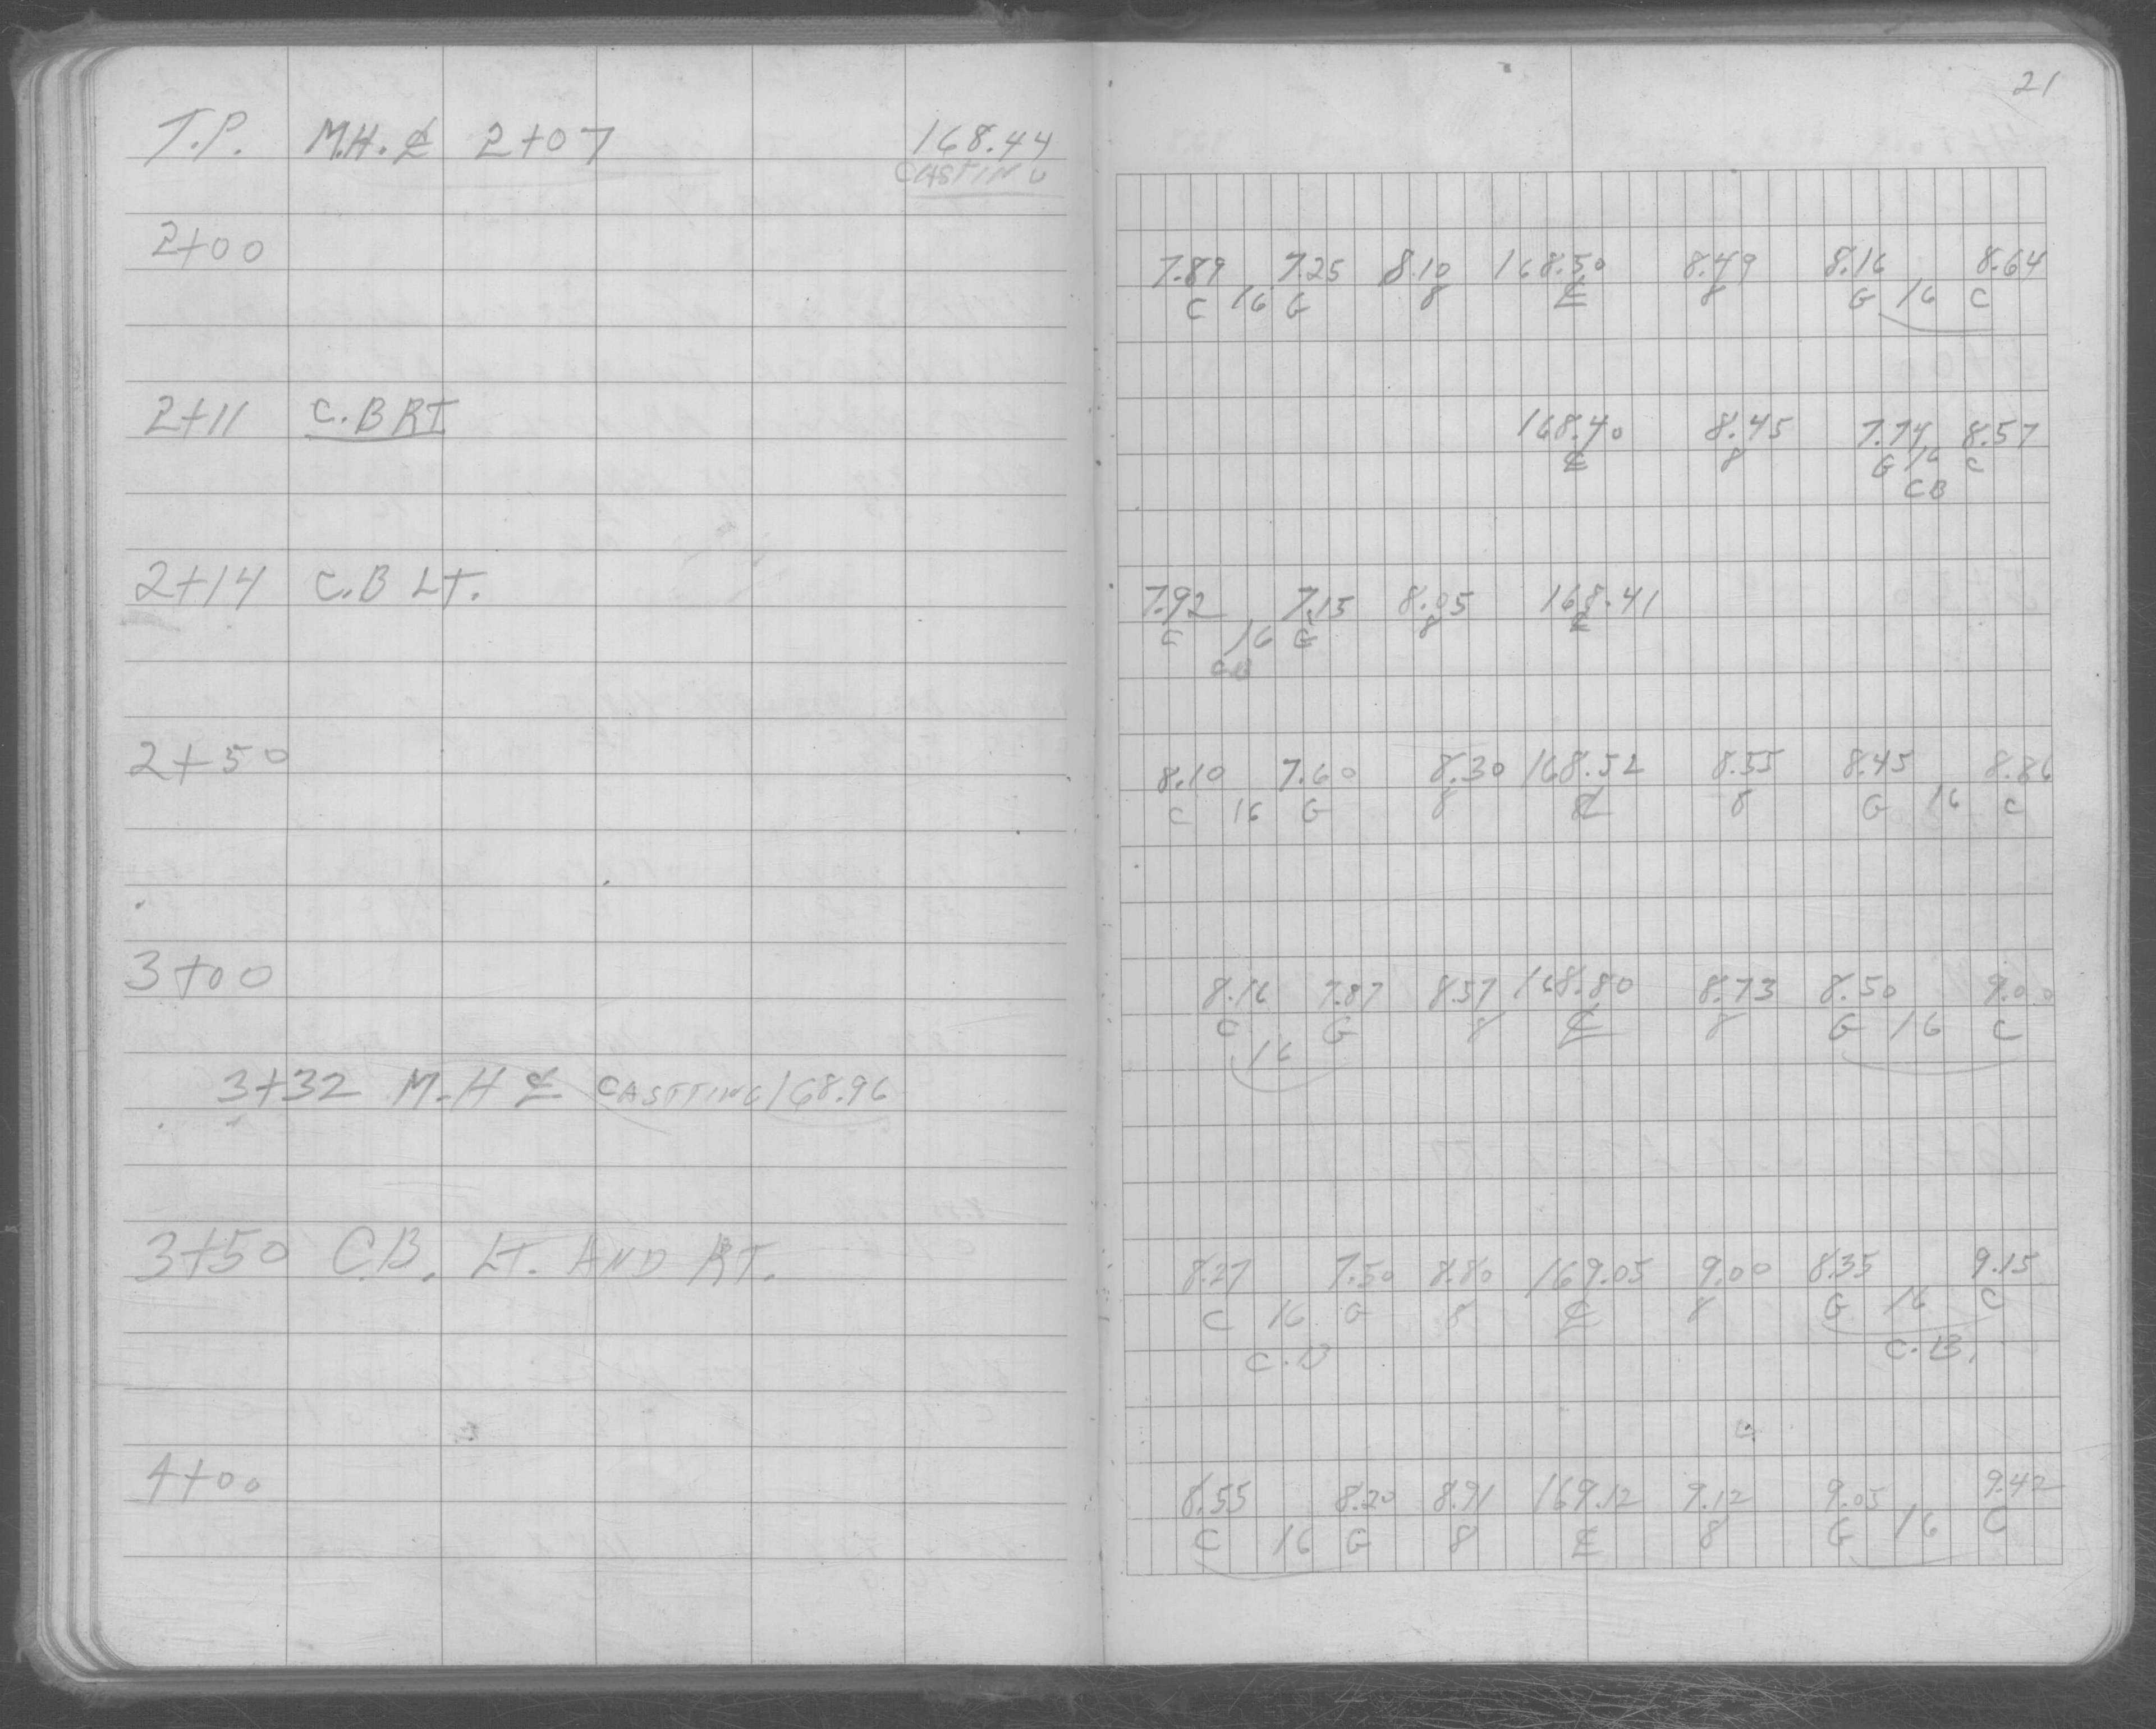 21
T.P. M.H. ℄ 2+07 168.44
CASTING
2+00
7.89 7.25 8.10 168.50 8.49 8.16 8.64
C 16 G 8 ℄ 8 G 16 C
2+11 C.B RT
168.40 8.45 7.74 8.57
℄ 8 G 16 C
CB
2+14 C.B LT.
7.92 7.15 8.05 168.41
C 16 G 8 ℄
CB
2+50
8.10 7.60 8.30 168.52 8.55 8.45 8.86
C 16 G 8 ℄ 8 G 16 C
3+00
8.16 7.87 8.57 168.80 8.73 8.50 9.00
C 16 G 8 ℄ 8 G 16 C
3+32 M.H ℄ CASTTING 168.96
3+50 C.B. LT. AND RT.
8.27 7.50 8.80 169.05 9.00 8.35 9.15
C 16 G 8 ℄ 8 G 16 C
C.B C.B.
4+00
8.55 8.20 8.91 169.12 9.12 9.05 9.42
C 16 G 8 ℄ 8 G 16 C